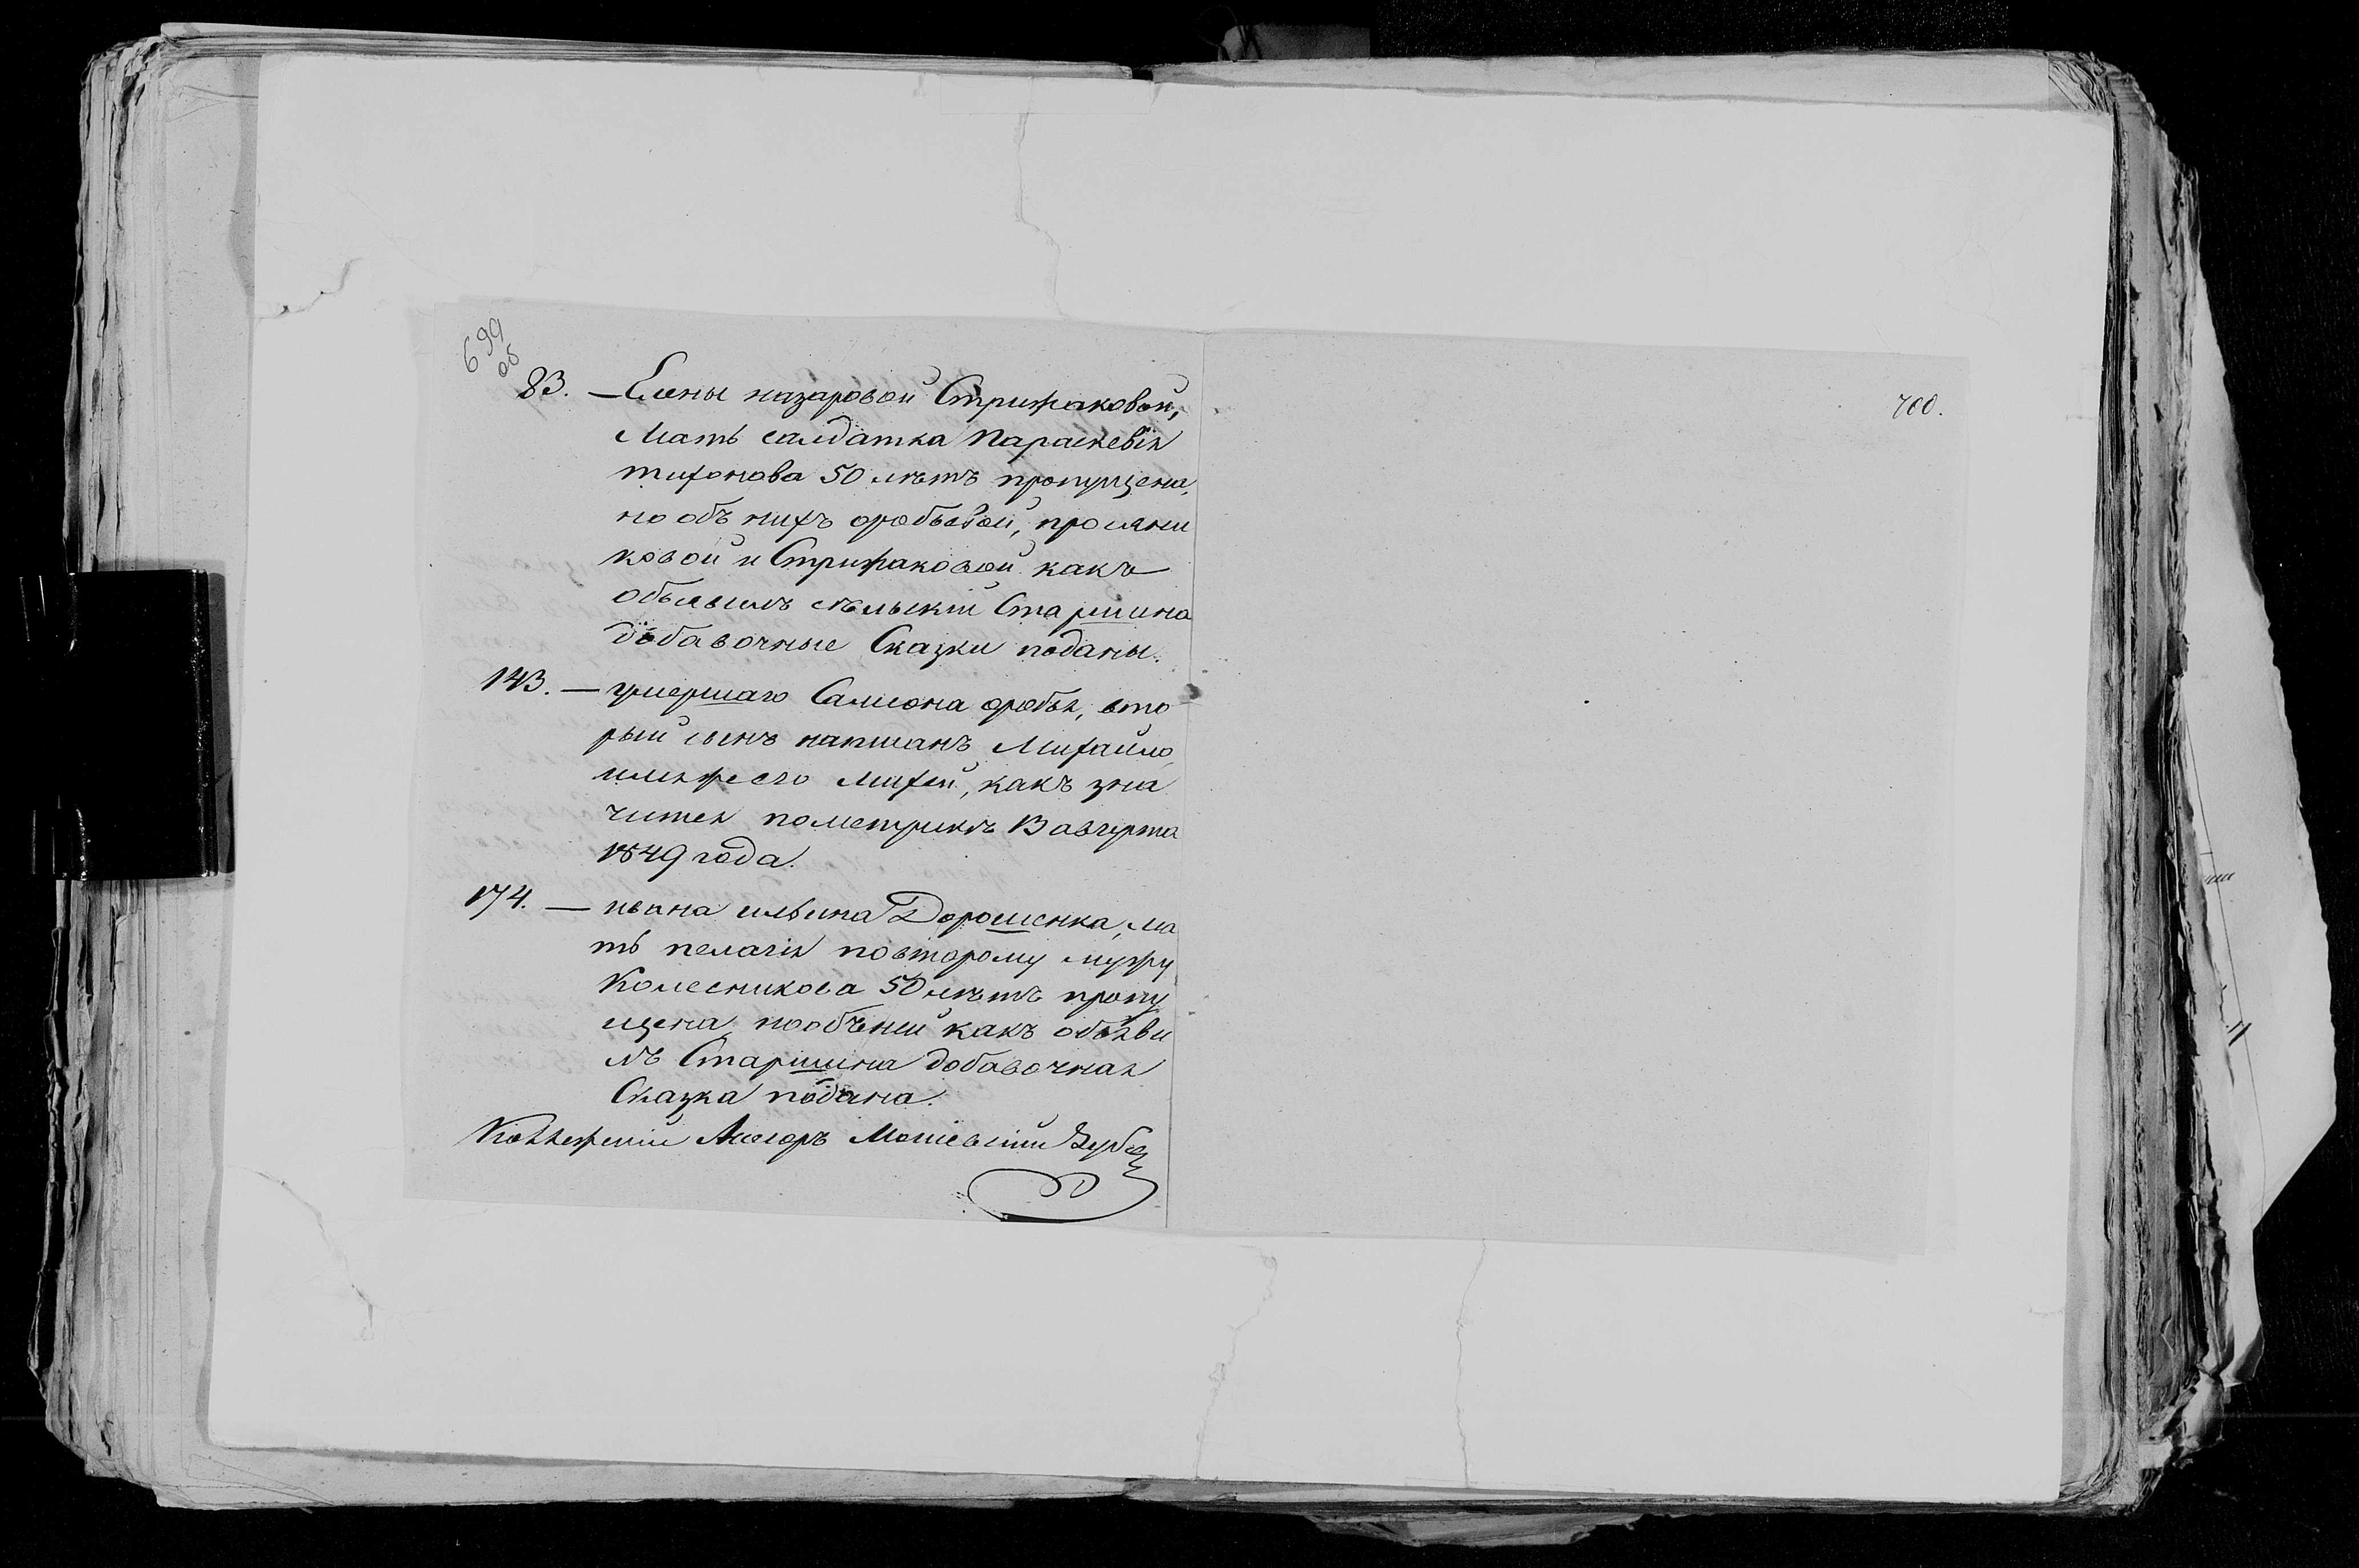 699
об
83. — Елены назаровой Стрижаковой,
Мать салдатка Параскевія
тихонова 50 лѣтъ пропущена,
но объ нихъ
ковой и Стрижаковой какъ
объявилъ сѣльскій Старшина
добавочные Сказки поданы.
143. — умершаго Самсона вто
рый сынъ написанъ Михайло,
имяже его Михей, какъ зна
чится пометрикѣ 13 августа
1849 года.
174. — ивана ильина Дорошенка, ма
ть пелагія повторому мужу
Колесникова 50 лѣтъ пропу
щена, нообъней какъ объяви
лъ Старшина добавочная
Сказка подана.
700.